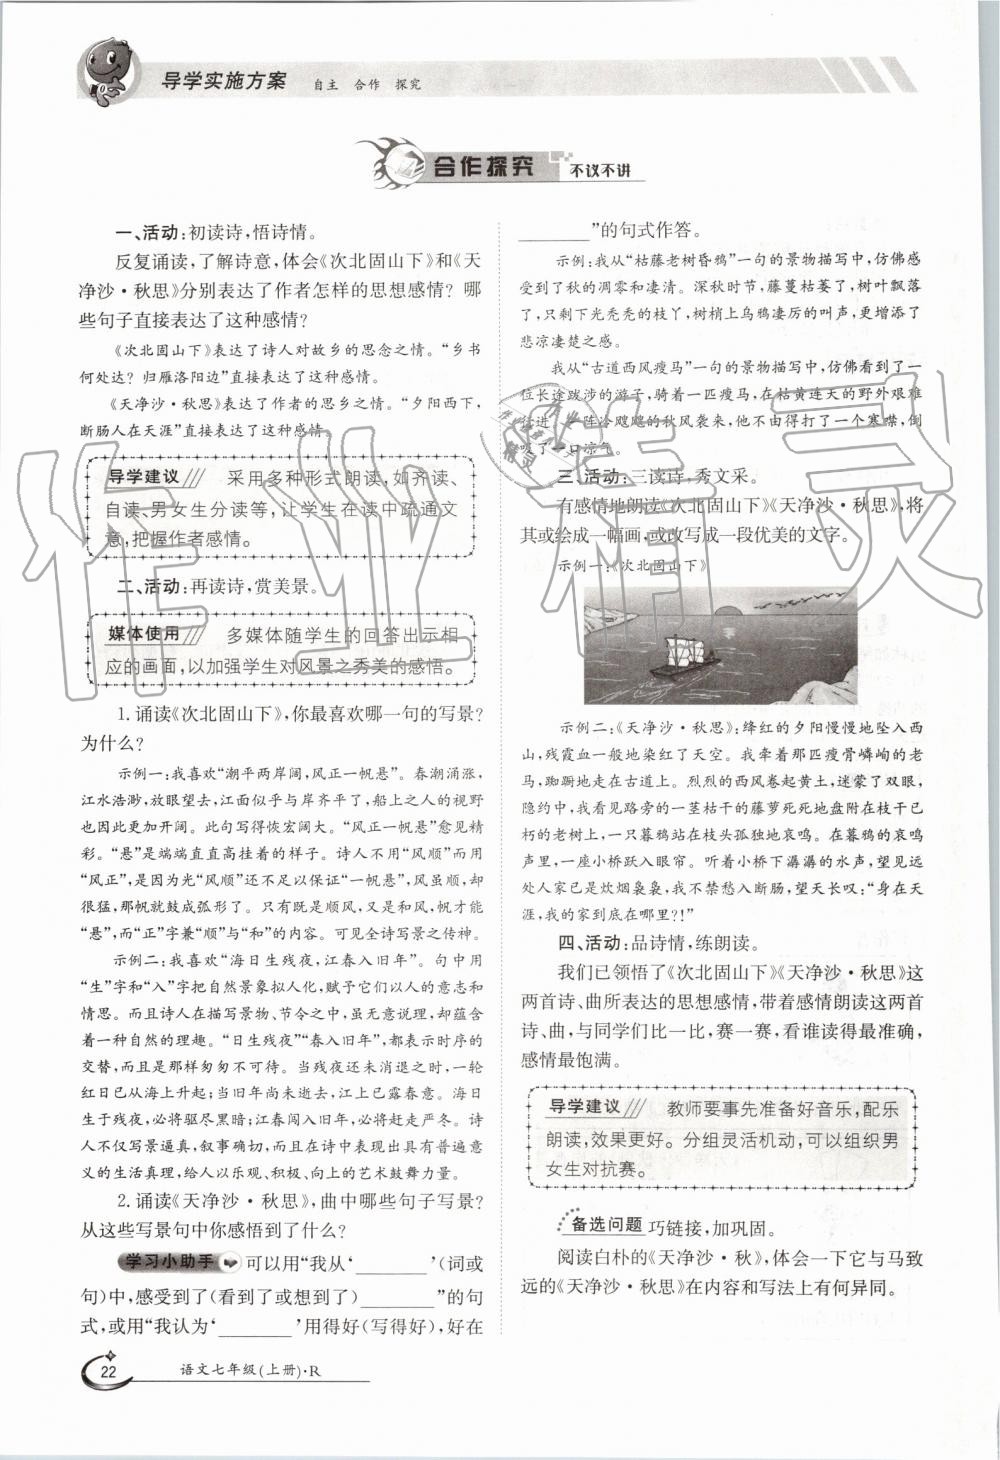 导学实施方案 自主 合作 探究
合作探究 不议不讲
一、活动:初读诗,悟诗情。
反复诵读,了解诗意,体会《次北固山下》和《天
净沙·秋思》分别表达了作者怎样的思想感情？哪
些句子直接表达了这种感情？
《次北固山下》表达了诗人对故乡的思念之情。“乡书
何处达？归雁洛阳边”直接表达了这种感情。
《天净沙·秋思》表达了作者的思乡之情。“夕阳西下,
断肠人在天涯”直接表达了这种感情。
导学建议 采用多种形式朗读,如齐读、
自读、男女生分读等,让学生在读中疏通文
意,把握作者感情。
二、活动:再读诗,赏美景。
媒体使用 多媒体随学生的回答出示相
应的画面,以加强学生对风景之秀美的感悟。
1. 诵读《次北固山下》,你最喜欢哪一句的写景？
为什么？
示例一:我喜欢“潮平两岸阔,风正一帆悬”。春潮涌涨,
江水浩渺,放眼望去,江面似乎与岸齐平了,船上之人的视野
也因此更加开阔。此句写得恢宏阔大。“风正一帆悬”愈见精
彩。“悬”是端端直直高挂着的样子。诗人不用“风顺”而用
“风正”,是因为光“风顺”还不足以保证“一帆悬”,风虽顺,却
很猛,那帆就鼓成弧形了。只有既是顺风,又是和风,帆才能
“悬”,而“正”字兼“顺”与“和”的内容。可见全诗写景之传神。
示例二:我喜欢“海日生残夜,江春入旧年”。句中用
“生”字和“入”字把自然景象拟人化,赋予它们以人的意志和
情思。而且诗人在描写景物、节令之中,虽无意说理,却蕴含
着一种自然的理趣。“日生残夜”“春入旧年”,都表示时序的
交替,而且是那样匆匆不可待。当残夜还未消退之时,一轮
红日已从海上升起;当旧年尚未逝去,江上已露春意。海日
生于残夜,必将驱尽黑暗;江春闯入旧年,必将赶走严冬。诗
人不仅写景逼真,叙事确切,而且在诗中表现出具有普遍意
义的生活真理,给人以乐观、积极、向上的艺术鼓舞力量。
2. 诵读《天净沙·秋思》,曲中哪些句子写景？
从这些写景句中你感悟到了什么？
学习小助手 可以用“我从‘________’(词或
句)中,感受到了(看到了或想到了)________”的句
式,或用“我认为‘________’用得好(写得好),好在
________”的句式作答。
示例:我从“枯藤老树昏鸦”一句的景物描写中,仿佛感
受到了秋的凋零和凄清。深秋时节,藤蔓枯萎了,树叶飘落
了,只剩下光秃秃的枝丫,树梢上乌鸦凄厉的叫声,更增添了
悲凉凄楚之感。
我从“古道西风瘦马”一句的景物描写中,仿佛看到了一
位长途跋涉的游子,骑着一匹瘦马,在枯黄连天的野外艰难
行进,一阵冷飕飕的秋风袭来,他不由得打了一个寒噤,倒
吸了一口凉气。
三、活动:三读诗,秀文采。
有感情地朗读《次北固山下》《天净沙·秋思》,将
其或绘成一幅画,或改写成一段优美的文字。
示例一:《次北固山下》
示例二:《天净沙·秋思》:绛红的夕阳慢慢地坠入西
山,残霞血一般地染红了天空。我牵着那匹瘦骨嶙峋的老
马,踟蹰地走在古道上。烈烈的西风卷起黄土,迷蒙了双眼,
隐约中,我看见路旁的一茎枯干的藤萝死死地盘附在枝干已
朽的老树上,一只暮鸦站在枝头孤独地哀鸣。在暮鸦的哀鸣
声里,一座小桥跃入眼帘。听着小桥下潺潺的水声,望见远
处人家已是炊烟袅袅,我不禁愁入断肠,望天长叹:“身在天
涯,我的家到底在哪里?!”
四、活动:品诗情,练朗读。
我们已领悟了《次北固山下》《天净沙·秋思》这
两首诗、曲所表达的思想感情,带着感情朗读这两首
诗、曲,与同学们比一比,赛一赛,看谁读得最准确,
感情最饱满。
导学建议 教师要事先准备好音乐,配乐
朗读,效果更好。分组灵活机动,可以组织男
女生对抗赛。
备选问题 巧链接,加巩固。
阅读白朴的《天净沙·秋》,体会一下它与马致
远的《天净沙·秋思》在内容和写法上有何异同。
22 语文七年级(上册)·R
作业精灵